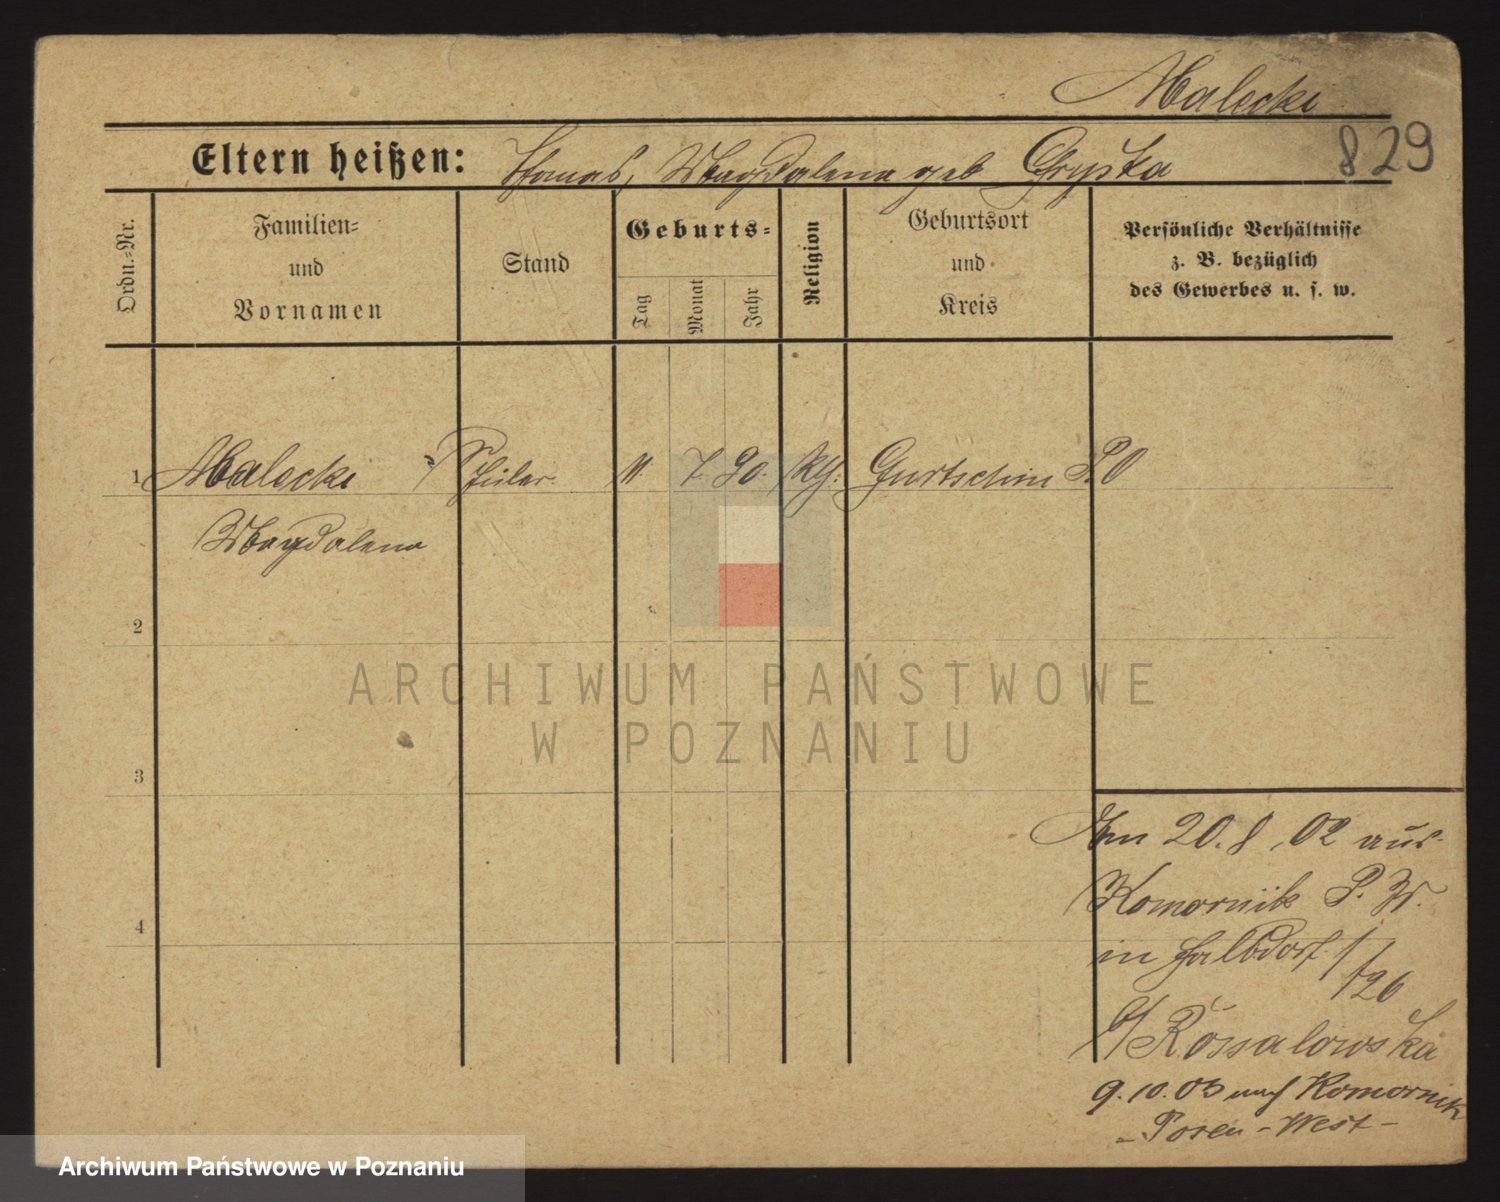 Malecki
829
Eltern heißen: Thomas, Magdalena geb Gryska
Ordn.-Nr.
Familien-
und
Vornamen
Stand
Geburts-
Tag
Monat
Jahr
Religion
Geburtsort
und
Kreis
Persönliche Verhältnisse
z. B. bezüglich
des Gewerbes u. s. w.
1 Malecki Schüler. 11. 7. 90. kth. Gurtschin P. O
Magdalena
2
3
4
ARCHIWUM PAŃSTWOWE
W POZNANIU
Am 20. 8. 02 aus
Komornik P. W.
in Halbdorfst
26
b/ Rossalowska
9. 10. 03 nach Komornik
- Posen - West -
Archiwum Państwowe w Poznaniu